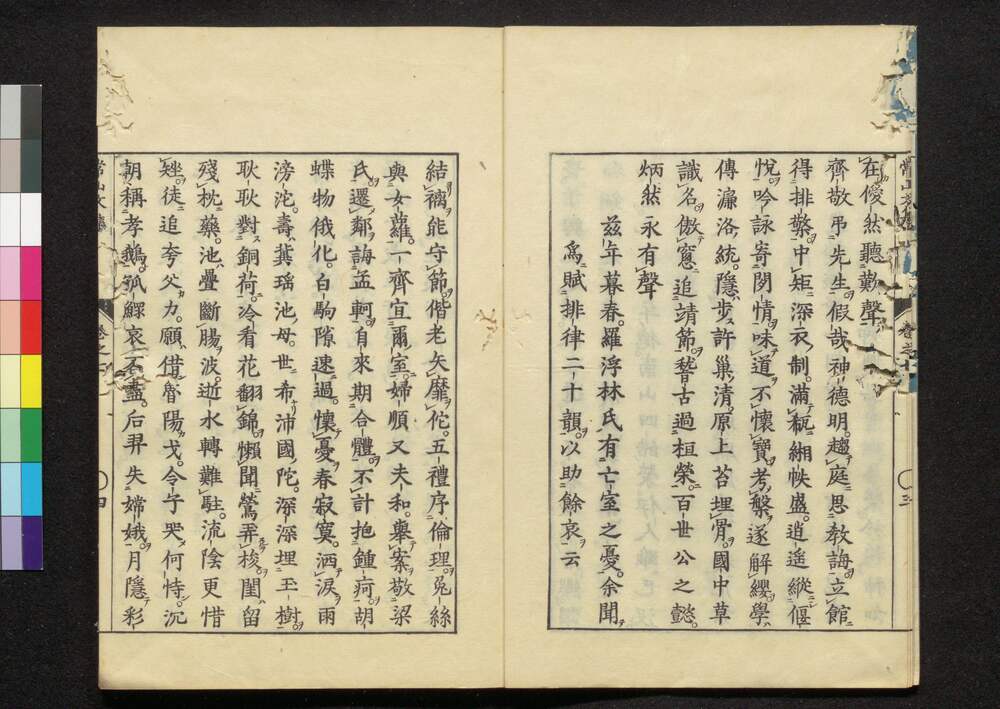 在僾然聽歎聲
齊敬弔先生假哉神德明趨庭思教誨立館
得排檠中矩深衣制滿甀緗帙盛逍遥縱偃
悅吟詠寄閑情味道不懷寶考槃遂解纓學
傳濂洛統隱步許巢清原上苔埋骨國中草
識名倣窓追靖節瞽古過桓榮百世公之懿
炳然永有聲
茲年暮春羅浮林氏有亡室之憂余聞
爲賦排律二十韻以助餘哀云
結褵能守節偕老矢靡佗五禮序倫理兔絲
與女蘿一齊宜爾室婦順又夫和擧案敬梁
氏遷鄰誨孟軻自來期合體不計抱鍾痾胡
蝶物俄化白駒隙速過懷憂春寂寞洒淚雨
滂沱壽冀瑶池母世希沛國陀深深埋玉樹
耿耿對銅荷冷看花翻錦懶聞鶯弄梭閨留
殘枕藥池疊斷腸波逝水轉難駐流陰更惜
矬徒追夸父力願借魯陽戈令兮哭何恃沉
朝稱孝鵝孤鰥哀不盡后羿失嫦娥月隱彩
常山文集
卷之
四
三